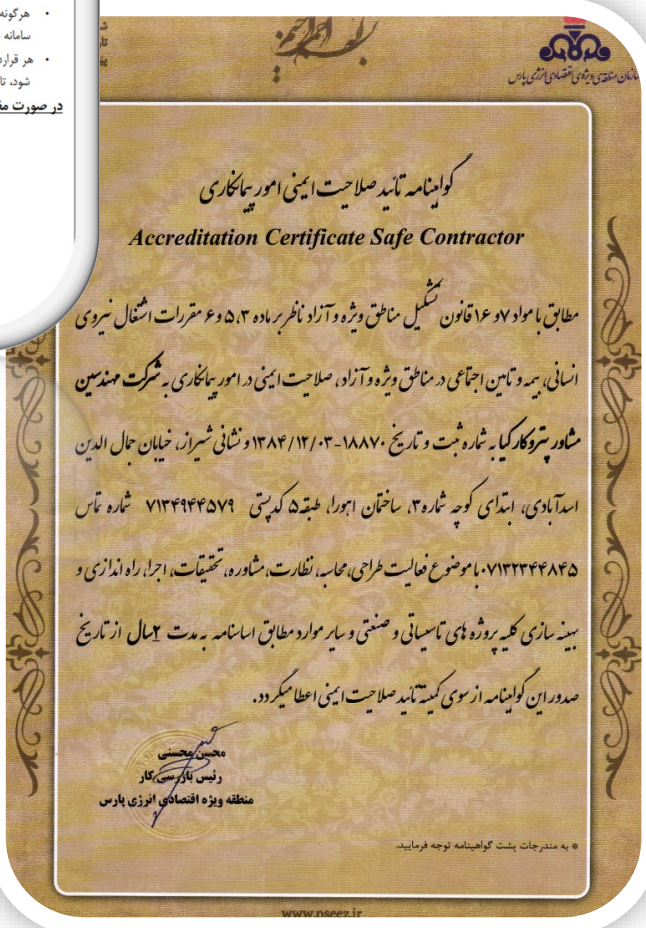 هرگونه
سامانه
هر قرارد
شود، تا
بسم الله الرحمن الرحیم
سازمان منطقه‌ی ویژه‌ی اقتصادی انرژی پارس
گواهینامه تائید صلاحیت ایمنی امور پیمانکاری
Accreditation Certificate Safe Contractor
مطابق با مواد ۷ و ۱۶ قانون تشکیل مناطق ویژه و آزاد ناظر بر ماده ۵،۳ و ۶ مقررات اشتغال نیروی
انسانی، بیمه و تامین اجتماعی در مناطق ویژه و آزاد، صلاحیت ایمنی در امور پیمانکاری به شرکت مهندسین
مشاور پتروکار کیا به شماره ثبت و تاریخ ۱۸۸۷۰-۱۳۸۴/۱۲/۰۳ و نشانی شیراز، خیابان جمال الدین
اسدآبادی، ابتدای کوچه شماره ۳، ساختمان اهورا، طبقه ۵ کدپستی ۷۱۳۴۹۴۴۵۷۹ شماره تماس
۰۷۱۳۲۳۴۴۸۴۵ با موضوع فعالیت طراحی، محاسبه، نظارت، مشاوره، تحقیقات، اجرا، راه اندازی و
بهینه سازی کلیه پروژه های تاسیساتی و صنعتی و سایر موارد مطابق اساسنامه به مدت ۲سال از تاریخ
صدور این گواهینامه از سوی کمیته تائید صلاحیت ایمنی اعطا میگردد.
محسن محسنی
رئیس بازرسی کار
منطقه ویژه اقتصادی انرژی پارس
* به مندرجات پشت گواهینامه توجه فرمایید.
www.pseez.ir